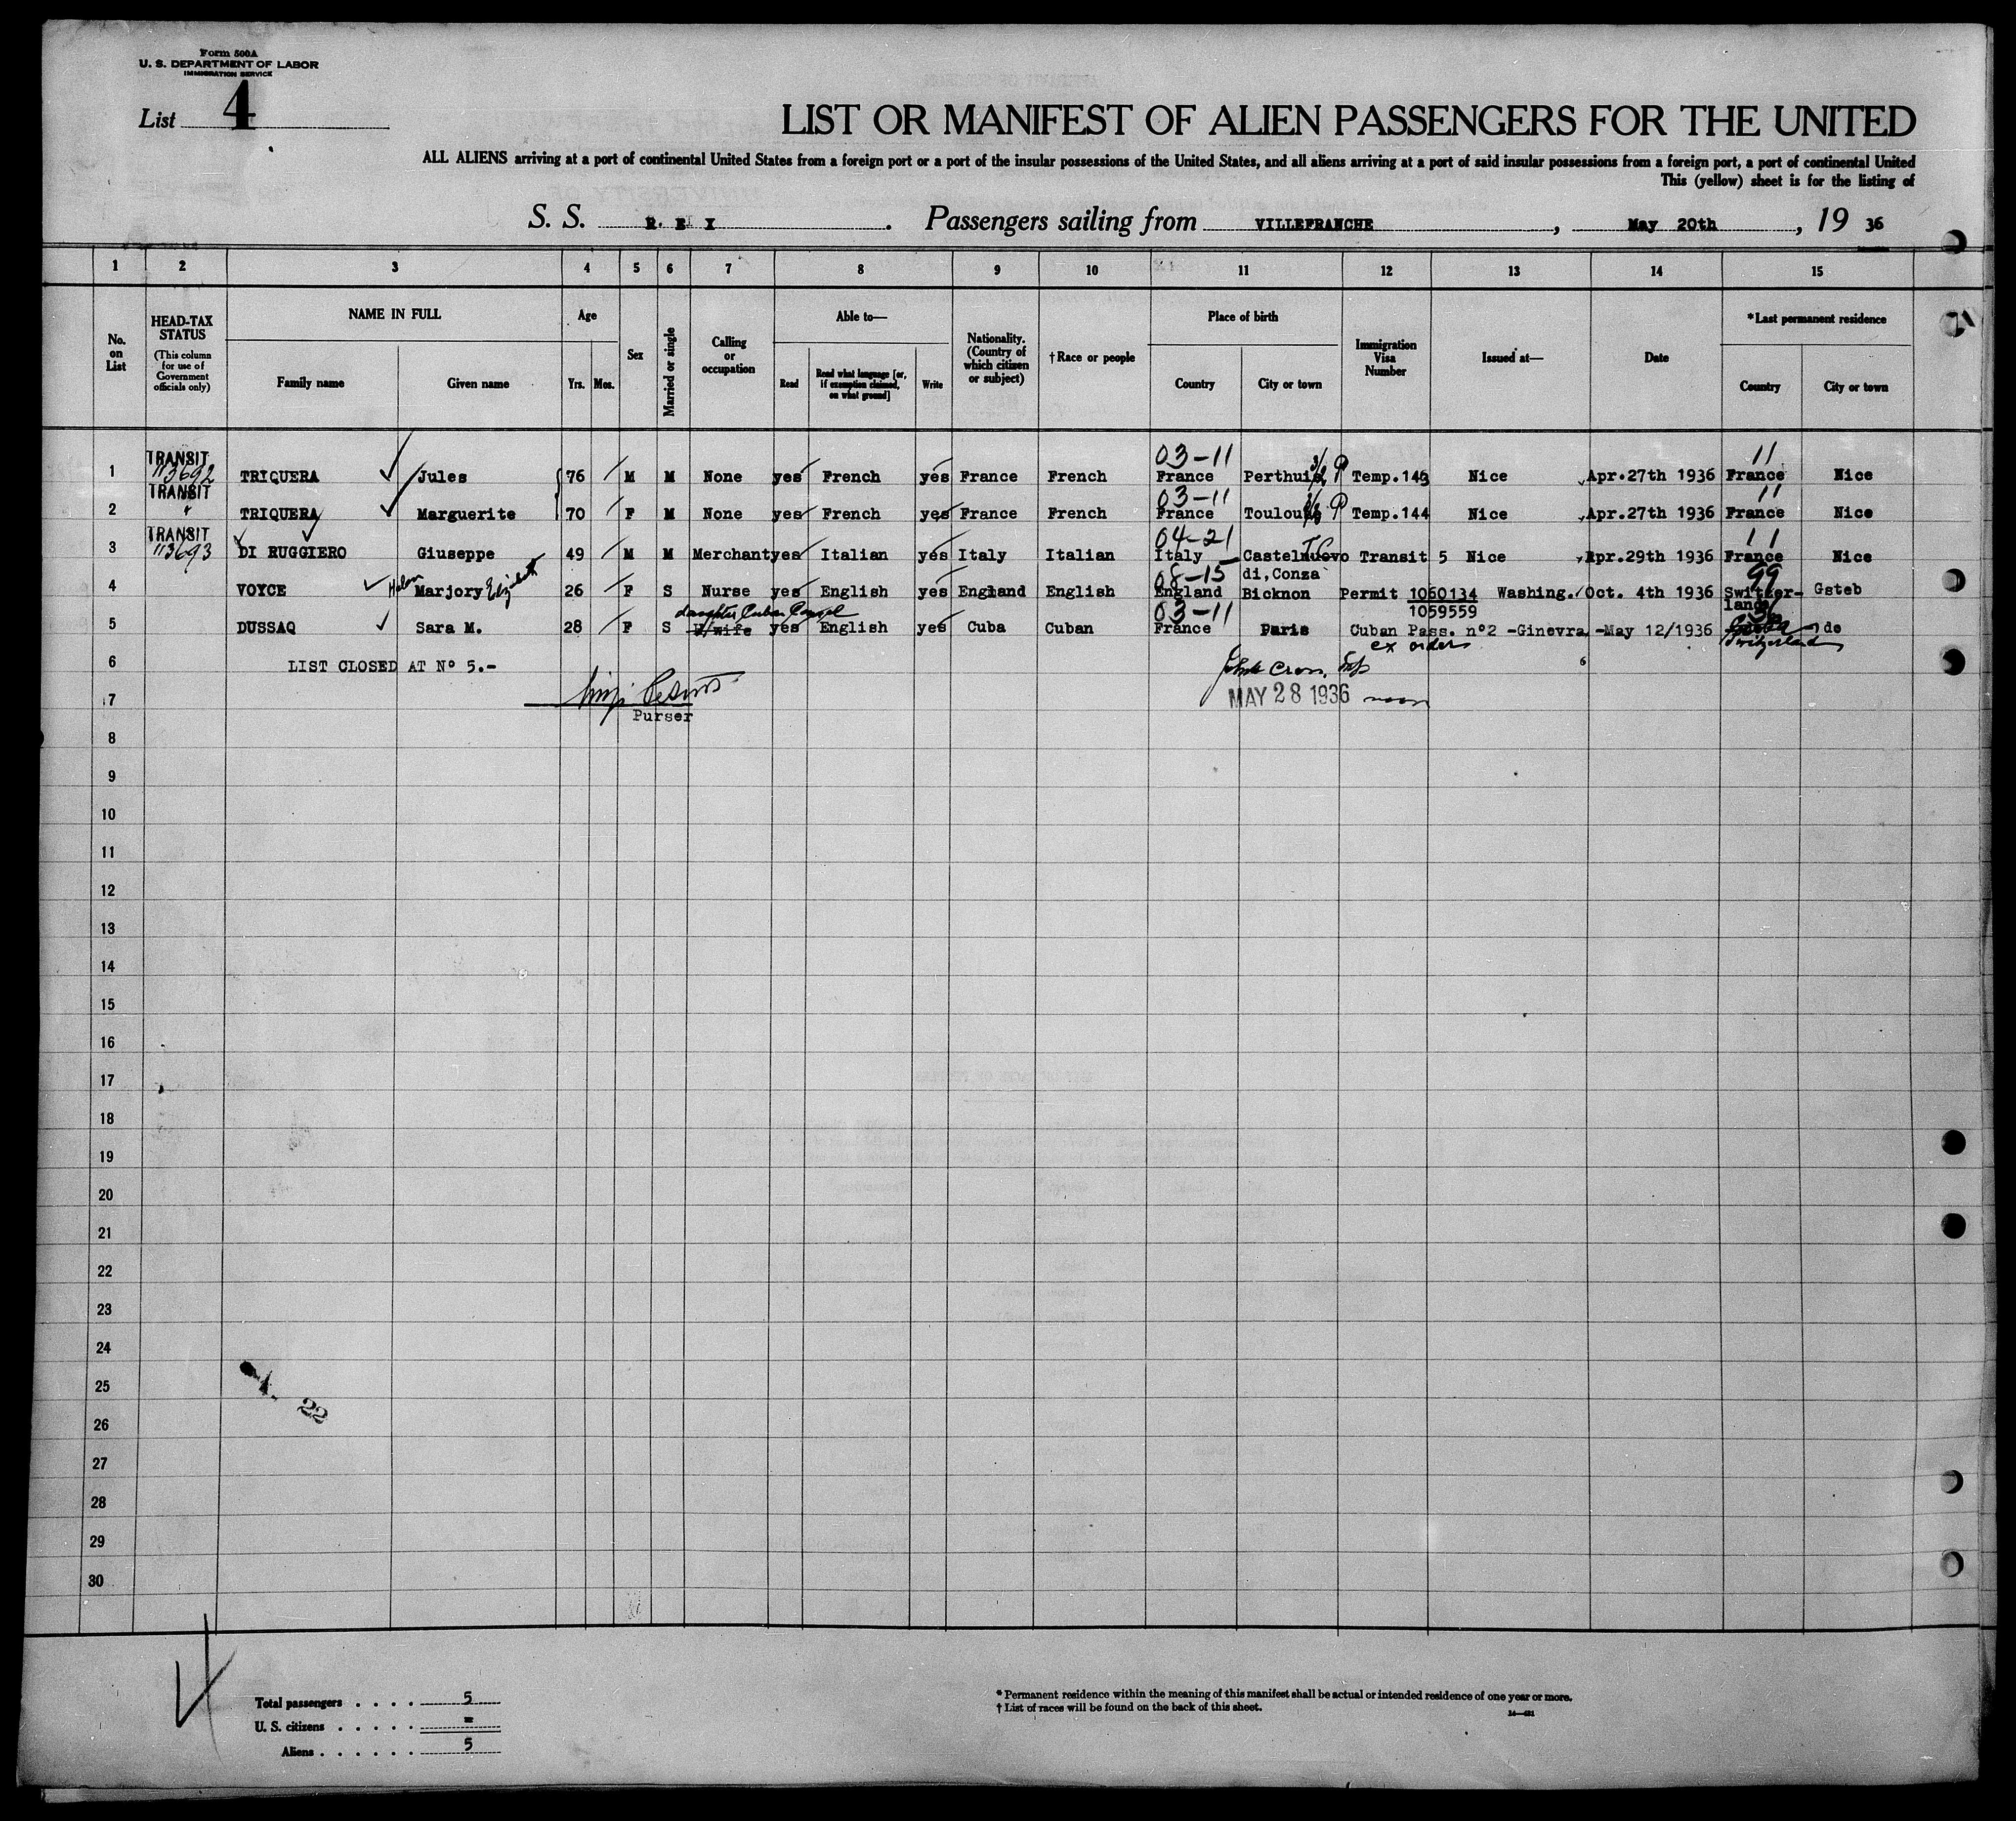 Form 500A
U. S. DEPARTMENT OF LABOR
IMMIGRATION SERVICE
List 4
LIST OR MANIFEST OF ALIEN PASSENGERS FOR THE UNITED
ALL ALIENS arriving at a port of continental United States from a foreign port or a port of the insular possessions of the United States, and all aliens arriving at a port of said insular possessions from a foreign port, a port of continental United
This (yellow) sheet is for the listing of
S. S. R E X . Passengers sailing from VILLEFRANCHE , May 20th , 19 36
1 2 3 4 5 6 7 8 9 10 11 12 13 14 15
No. on List
HEAD-TAX STATUS (This column for use of Government officials only)
NAME IN FULL
Family name Given name
Age
Yrs. Mos.
Sex
Married or single
Calling or occupation
Able to—
Read Read what language [or, if exemption claimed, on what ground] Write
Nationality. (Country of which citizen or subject)
† Race or people
Place of birth
Country City or town
Immigration Visa Number
Issued at—
Date
* Last permanent residence
Country City or town
TRANSIT 113692 03-11 11
1 TRIQUERA Jules 76 M M None yes French yes France French France Perthuis Temp.143 Nice Apr.27th 1936 France Nice
TRANSIT " 03-11 11
2 TRIQUERA Marguerite 70 F M None yes French yes France French France Toulouse Temp.144 Nice Apr.27th 1936 France Nice
TRANSIT 113693 04-21 11
3 DI RUGGIERO Giuseppe 49 M M Merchant yes Italian yes Italy Italian Italy Castelnuovo Transit 5 Nice Apr.29th 1936 France Nice
di,Conza
08-15 99
4 VOYCE Helen Marjory Elizabeth 26 F S Nurse yes English yes England English England Bicknon Permit 1060134 Washing. Oct. 4th 1936 Switzer- Gsteb
land
1059559
daughter Cuban Consul 03-11
5 DUSSAQ Sara M. 28 F S H/wife yes English yes Cuba Cuban France Paris Cuban Pass. nº2 -Ginevra -May 12/1936 de
ex order Switzerland
6 LIST CLOSED AT Nº 5.-
John Cross, Insp
7 MAY 28 1936 noon
Purser
8
9
10
11
12
13
14
15
16
17
18
19
20
21
22
23
24
25
26
27
28
29
30
22
4
Total passengers . . . . 5
U. S. citizens . . . . . =
Aliens . . . . . . 5
* Permanent residence within the meaning of this manifest shall be actual or intended residence of one year or more.
† List of races will be found on the back of this sheet.